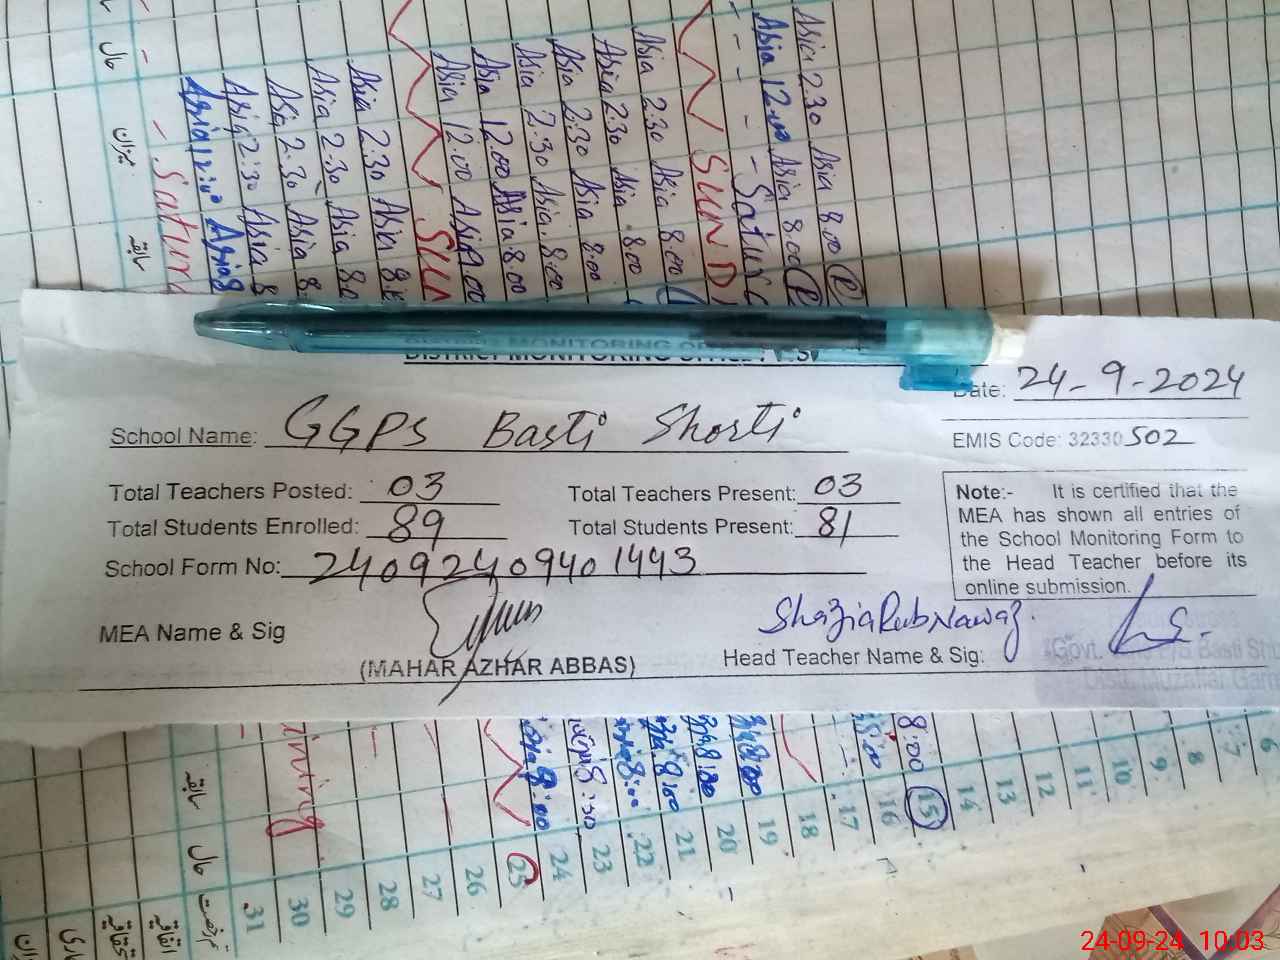 DISTRICT MONITORING OFFICE
Date: 24-9-2024
School Name: GGPS Basti Shorti
EMIS Code: 32330502
Total Teachers Posted: 03
Total Teachers Present: 03
Total Students Enrolled: 89
Total Students Present: 81
School Form No: 24092409401443
Note:- It is certified that the
MEA has shown all entries of
the School Monitoring Form to
the Head Teacher before its
online submission.
MEA Name & Sig
(MAHAR AZHAR ABBAS)
Shazia Rab Nawaz
Head Teacher Name & Sig:
Govt. Basti
Distt. Muzaffar Garh
Asia 2.30 Asia 8.00
Asia 12.00 Asia 8.00
SUND
Asia 2.30 Asia 8.00
Asia 2.30 Asia 8.00
Asia 2.30 Asia 8.00
Asia 2.30 Asia 8.00
Asia 12.00 Asia 8.00
Asia 12.00 Asia 9.00
SUN
Asia 2.30 Asia 8.
Asia 2.30 Asia 80
Asia 2.30 Asia 8
Asia 2:30 Asia 8
Asia 12:00 Asia 8
Satur
حال
میزان
سابقہ
8:00
8:00
8:00
8:00
8:00
8:00
8:30
8:00
ining
6
7
8
9
10
11
12
13
14
15
16
17
18
19
20
21
22
23
24
25
26
27
28
29
30
31
سابقہ
حال
اتفاقیہ
24-09-24 10:03